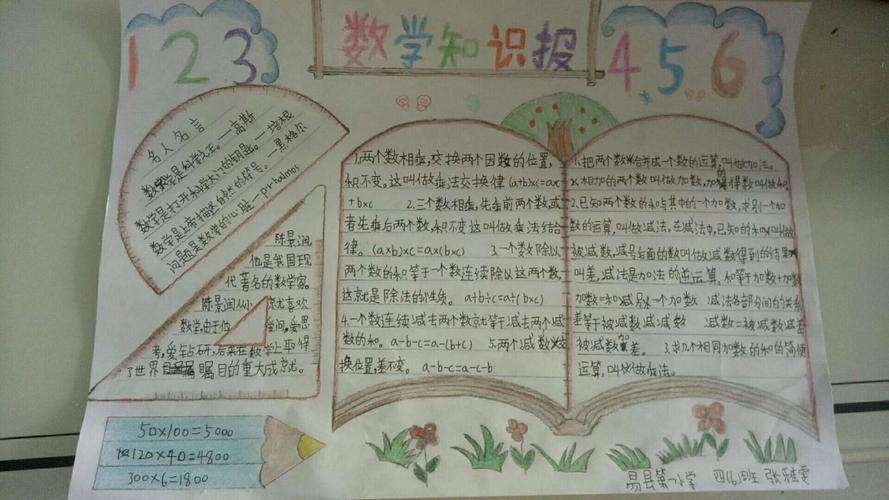 1 2 3
数学知识报
4 5 6
名人名言
数学是科学之王。—高斯
数学是打开科学大门的钥匙。—培根
数学是上帝描述自然的符号。—黑格尔
问题是数学的心脏—prhalmos
陈景润
他是我国现
代著名的数学家。
陈景润从小就喜欢
数学,由于他爱问,爱思
考,爱钻研,后来在数学上取得
了世界瞩目的重大成就。
50×100=5000
120×40=4800
300×6=1800
1.两个数相乘,交换两个因数的位置,
积不变。这叫做乘法交换律(a+b)×c=a×
+b×c 2.三个数相乘,先乘前两个数,或
者先乘后两个数,积不变这叫做乘法结合
律。(a×b)×c=a×(b×c) 3.一个数除以
两个数的积等于一个数连续除以这两个数,
这就是除法的性质。a÷b÷c=a÷(b×c)
4.一个数连续减去两个数就等于减去两个减
数的和。a-b-c=a-(b+c) 5.两个减数交
换位置,差不变。a-b-c=a-c-b
1.把两个数合并成一个数的运算,叫做加法。
相加的两个数叫做加数,加得数叫做和。
2.已知两个数的和与其中的一个加数,求另一个加
数的运算,叫做减法。在减法中,已知的和叫做
被减数,减号后面的数叫做减数得到的结果
叫差,减法是加法的逆运算,和等于加数+加数
加数=和减另一个加数 减法各部分间的关系
差等于被减数减减数 减数=被减数减差
被减数 加差。 3.求几个相同加数的和的简便
运算,叫做乘法。
易县第一小学 四(6)班 张雅雯